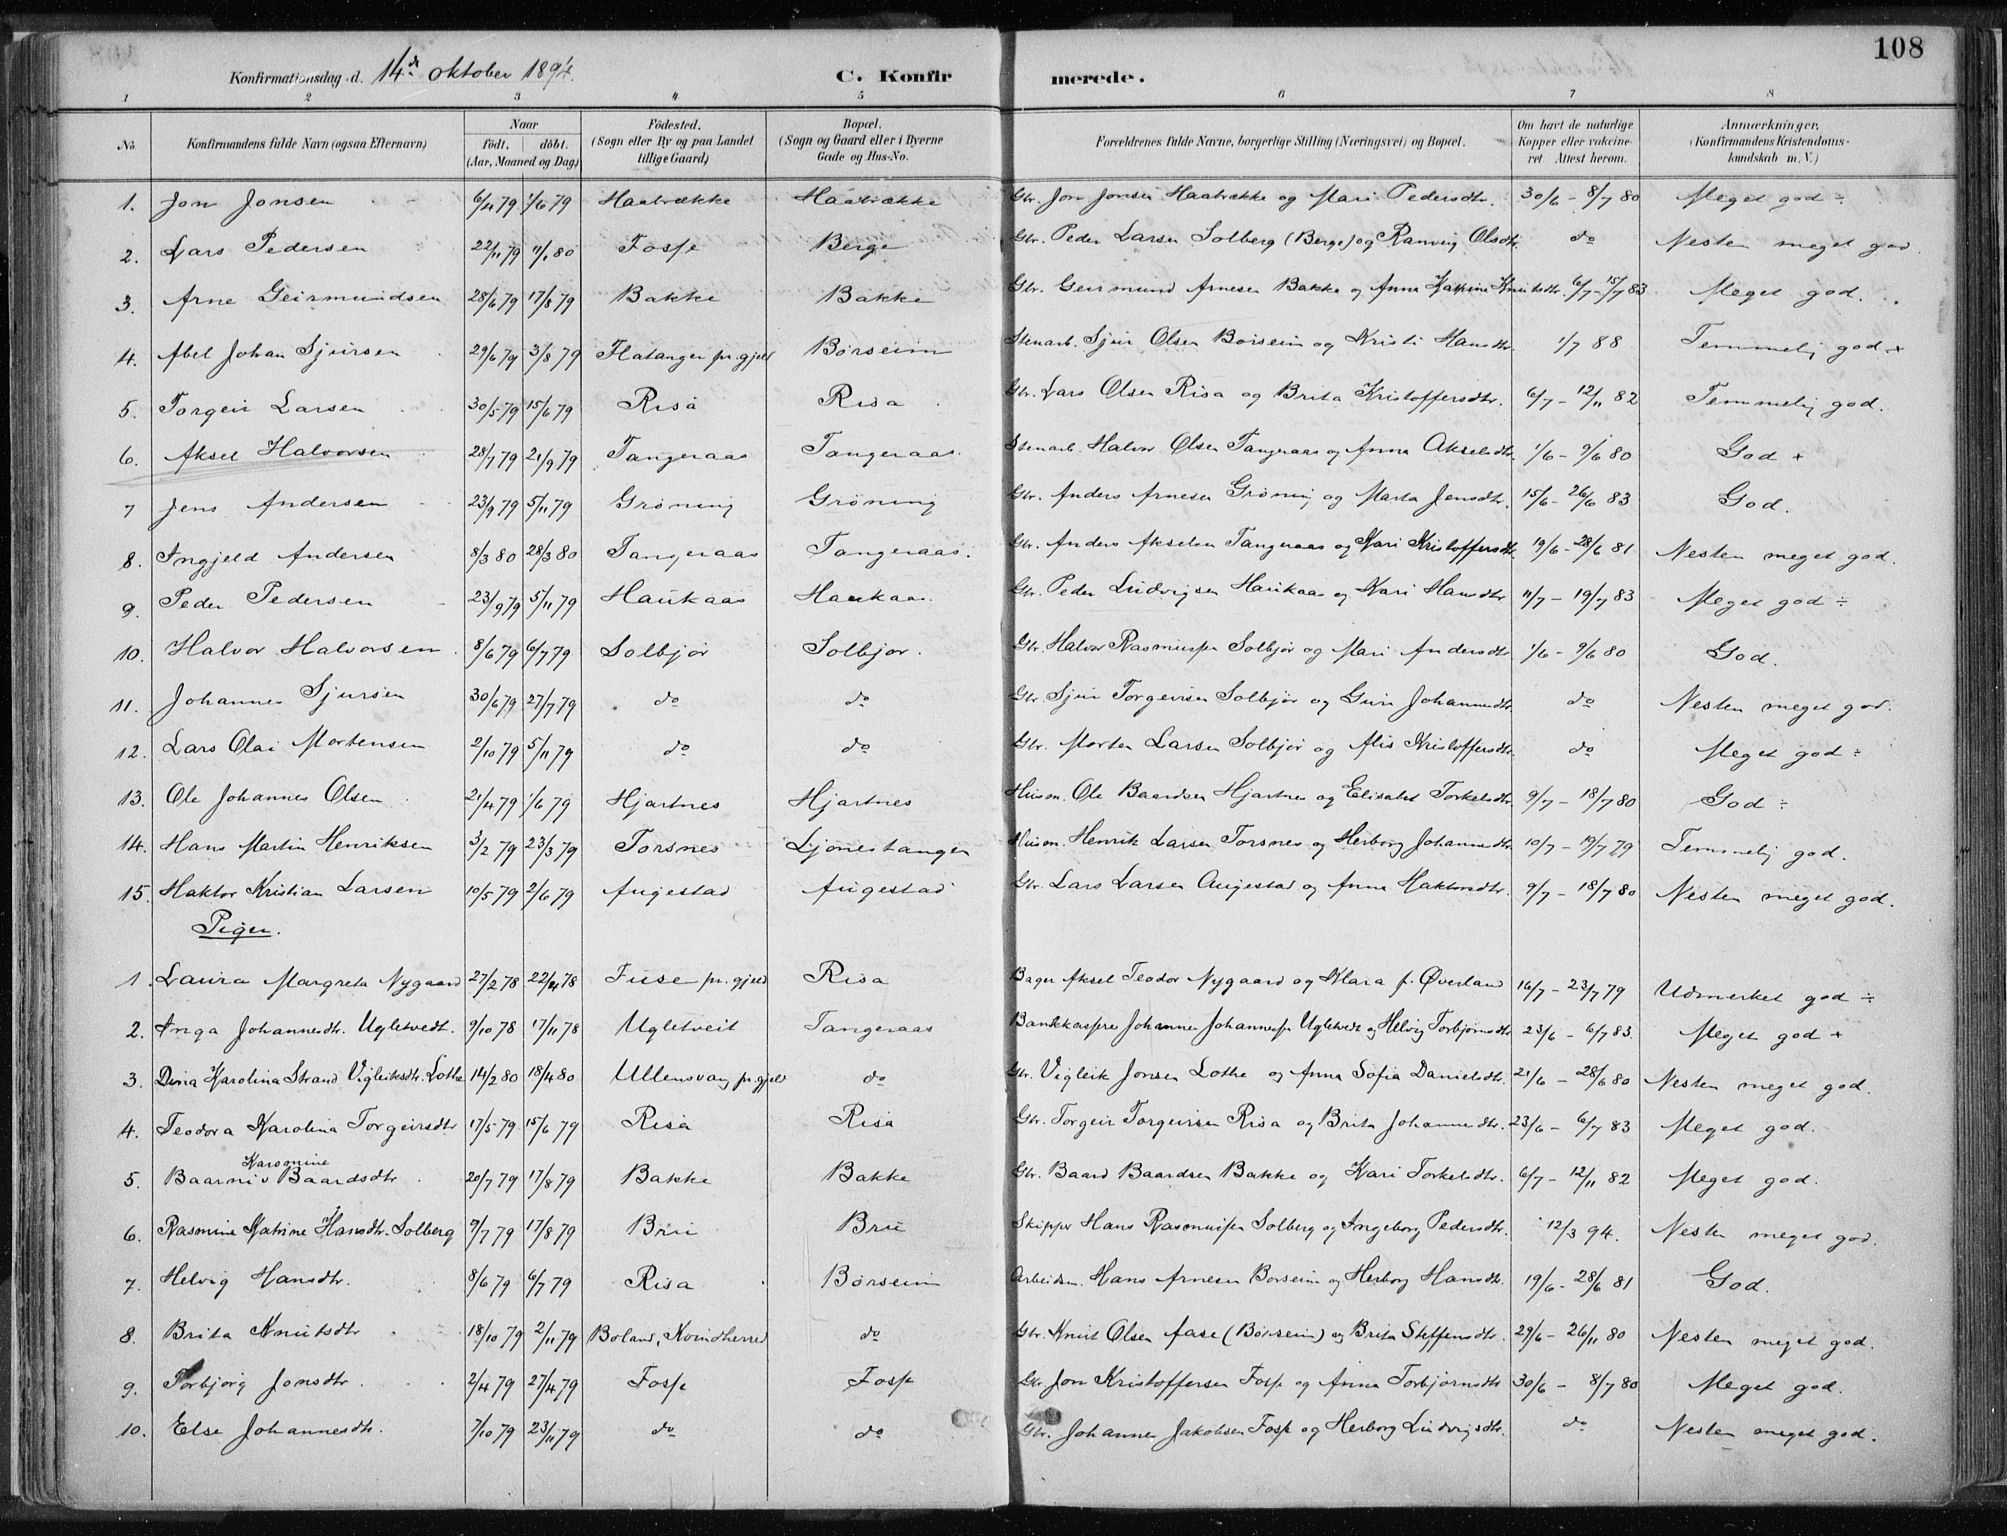 108
Konfirmationsdag d. 14de oktober 1894. C. Konfirmerede.
1 2 3 4 5 6 7 8
No. Konfirmandens fulde Navn (ogsaa Efternavn) Naar født. døbt. (Aar, Maaned og Dag) Fødested. (Sogn eller By og paa Landet tillige Gaard) Bopæl. (Sogn og Gaard eller i Byerne Gade og Hus-No. Forældrenes fulde Navne, borgerlige Stilling (Næringsvei) og Bopæl. Om havt de naturlige Kopper eller vaccineret Attest herom. Anmærkninger. (Konfirmandens Kristendomskundskab m. V.)
1. Jon Jonsen 6/4 79 1/6 79 Haabrække Haabrække Gbr. Jon Jonsen Haabrække og Mari Pedersdtr. 30/6 - 8/7 80 Meget god ÷
2. Lars Pedersen 22/11 79 11/1 80 Fosse Berge Gbr. Peder Larsen Solberg (Berge) og Ranveig Olsdtr. do Nesten meget god.
3. Arne Geirmundsen 28/6 79 17/8 79 Bakke Bakke Gbr. Geirmund Arnesen Bakke og Anna Katrine Knutsdtr. 6/7 - 15/7 83 Meget god.
4. Abel Johan Sjursen 29/6 79 3/8 79 Flatanger pr.gjeld Børseim Stenarb. Sjur Olsen Børseim og Kristi Hansdtr. 1/7 88 Temmelig god +
5. Torgeir Larsen 30/5 79 15/6 79 Risa Risa Gbr. Lars Olsen Risa og Brita Kristoffersdtr. 6/7 - 12/11 82 Temmelig god.
6. Aksel Halvorsen 28/7 79 21/9 79 Tangeraas Tangeraas. Stenarb. Halvor Olsen Tangeraas og Anna Akselsdtr. 1/6 - 9/6 80 God +
7 Jens Andersen 23/9 79 5/11 79 Grøning Grøning Gbr. Anders Arnesen Grøning og Marta Jensdtr. 15/6 - 26/6 83 God.
8. Ingjeld Andersen 8/3 80 28/3 80 Tangeraas Tangeraas. Gbr. Anders Akselsen Tangeraas og Kari Kristoffersdtr. 19/6 - 28/6 81 Nesten meget god.
9. Peder Pedersen 23/9 79 5/11 79 Haukaas Haukaas. Gbr. Peder Ludvigsen Haukaas og Kari Hansdtr 11/7 - 19/7 83 Meget god ÷
10. Halvor Halvorsen 8/6 79 6/7 79 Solbjør Solbjør. Gbr. Halvor Rasmussen Solbjør og Mari Andersdtr 1/6 - 9/6 80 God.
11. Johannes Sjursen 30/6 79 27/7 79 do do Gbr. Sjur Torgeirsen Solbjør og Guri Johannesdtr do Nesten meget god.
12. Lars Olai Mortensen 2/10 79 5/11 79 do do Gbr. Morten Larsen Solbjør og Alis Kristoffersdtr. do Meget god ÷
13. Ole Johannes Olsen 21/4 79 1/6 79 Hjartnes Hjartnes Husm. Ole Baardsen Hjartnes og Elisabet Torkelsdtr 9/7 - 18/7 80 God ÷
14. Hans Martin Henriksen 3/2 79 23/3 79 Torsnes Ljonestangen Husm. Henrik Larsen Torsnes og Herborg Johannesdtr 10/7 - 19/7 79 Temmelig god.
15. Haktor Kristian Larsen 10/5 79 2/6 79 Augestad Augestad Gbr. Lars Larsen Augestad og Anna Haktorsdtr. 9/7 - 18/7 80 Nesten meget god.
Piger.
1. Laura Margreta Nygaard 27/2 78 22/4 78 Fuse pr.gjeld Risa Bager Aksel Teodor Nygaard og Klara f. Øverland 16/7 - 23/7 79 Udmerket god ÷
2. Inga Johannesdtr. Ugletvedt. 9/10 78 17/11 78 Ugletveit Tangeraas Johannes Johannessen Ugletvedt og Helvig Torbjørnsdtr 23/6 - 6/7 83. Meget god +
3. Dina Karolina Strand Vigleiksdtr. Lothe 14/2 80 18/4 80 Ullensvang pr.gjeld do Gbr. Vigleik Jonsen Lothe og Anna Sofia Danielsdtr. 21/6 - 28/6 80 Nesten meget god.
4. Teodora Karolina Torgeirsdtr 17/5 79 15/6 79 Risa Risa Gbr. Torgeir Torgeirsen Risa og Brita Johannesdtr. 23/6 - 6/7 83 Meget god.
Karsmine
5. Baarni Baardsdtr 20/7 79 17/8 79 Bakke Bakke Gbr. Baard Baardsen Bakke og Kari Torkelsdtr. 6/7 - 12/11 82 Meget god.
6. Rasmine Katrine Hansdtr. Solberg 9/7 79 17/8 79 Bru Bru Skipper Hans Rasmussen Solberg og Ingeborg Pedersdtr. 12/3 94. Nesten meget god.
7. Helvig Hansdtr. 8/6 79 6/7 79 Risa Børseim Arbeidsm. Hans Arnesen Børseim og Herborg Hansdtr. 19/6 - 28/6 81 God.
8. Brita Knutsdtr 18/10 79 2/11 79 Boland, Kvindherred do Gbr. Knut Olsen Aase (Børseim) og Brita Steffensdtr. 29/6 - 26/11 80 Nesten meget god.
9. Torbjørg Jonsdtr. 2/4 79 27/4 79 Fosse Fosse Gbr. Jon Kristoffersen Fosse og Anna Torbjørnsdtr 30/6 - 8/7 80 Meget god.
10. Else Johannesdtr. 7/10 79 23/11 79 do do Gbr. Johannes Jakobsen Fosse og Herborg Ludvigsdtr. do Nesten meget god.